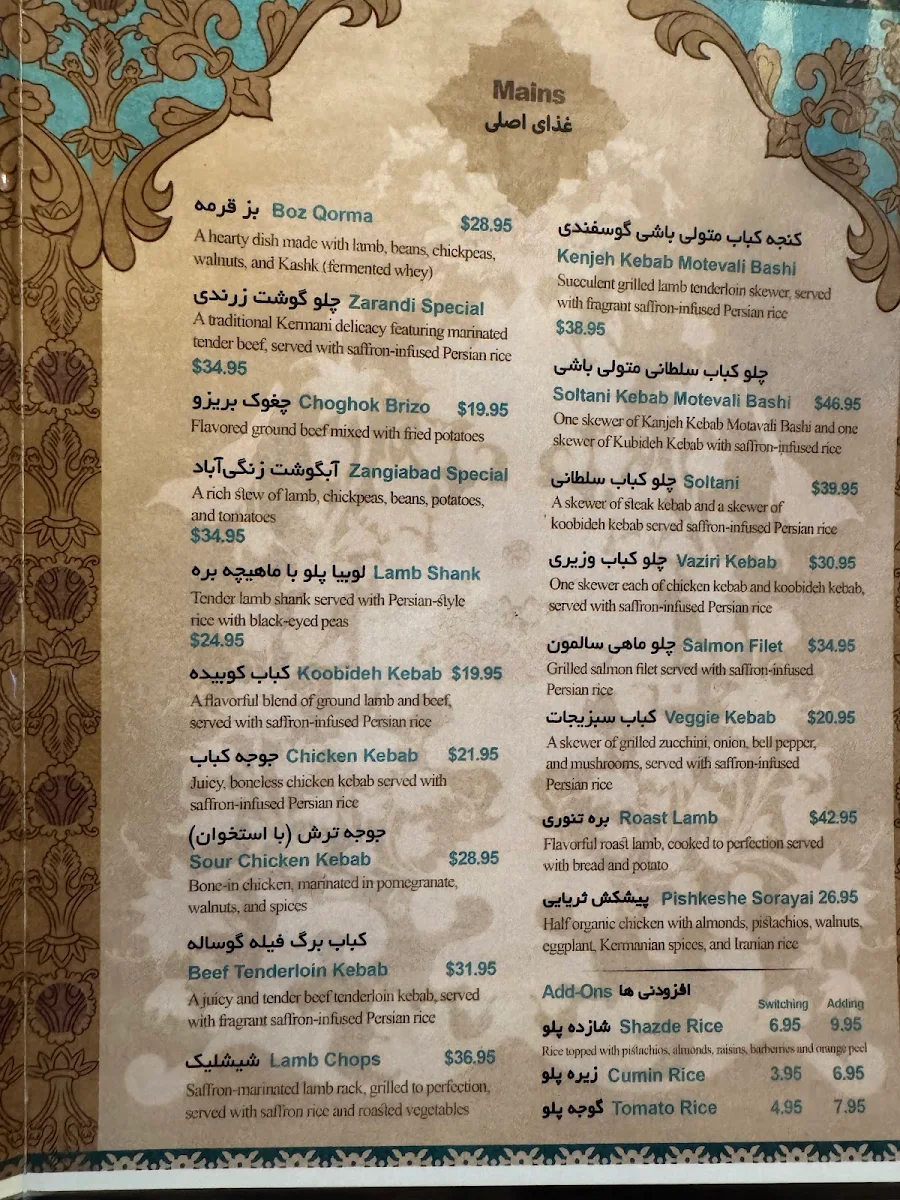 Mains
غذای اصلی
بز قرمه Boz Qorma $28.95
A hearty dish made with lamb, beans, chickpeas,
walnuts, and Kashk (fermented whey)
چلو گوشت زرندی Zarandi Special
A traditional Kermani delicacy featuring marinated
tender beef, served with saffron-infused Persian rice
$34.95
چغوک بریزو Choghok Brizo $19.95
Flavored ground beef mixed with fried potatoes
آبگوشت زنگی‌آباد Zangiabad Special
A rich stew of lamb, chickpeas, beans, potatoes,
and tomatoes
$34.95
لوبیا پلو با ماهیچه بره Lamb Shank
Tender lamb shank served with Persian-style
rice with black-eyed peas
$24.95
کباب کوبیده Koobideh Kebab $19.95
A flavorful blend of ground lamb and beef,
served with saffron-infused Persian rice
جوجه کباب Chicken Kebab $21.95
Juicy, boneless chicken kebab served with
saffron-infused Persian rice
جوجه ترش (با استخوان)
Sour Chicken Kebab $28.95
Bone-in chicken, marinated in pomegranate,
walnuts, and spices
کباب برگ فیله گوساله
Beef Tenderloin Kebab $31.95
A juicy and tender beef tenderloin kebab, served
with fragrant saffron-infused Persian rice
شیشلیک Lamb Chops $36.95
Saffron-marinated lamb rack, grilled to perfection,
served with saffron rice and roasted vegetables
کنجه کباب متولی باشی گوسفندی
Kenjeh Kebab Motevali Bashi
Succulent grilled lamb tenderloin skewer, served
with fragrant saffron-infused Persian rice
$38.95
چلو کباب سلطانی متولی باشی
Soltani Kebab Motevali Bashi $46.95
One skewer of Kanjeh Kebab Motavali Bashi and one
skewer of Kubideh Kebab with saffron-infused rice
چلو کباب سلطانی Soltani $39.95
A skewer of steak kebab and a skewer of
koobideh kebab served saffron-infused Persian rice
چلو کباب وزیری Vaziri Kebab $30.95
One skewer each of chicken kebab and koobideh kebab,
served with saffron-infused Persian rice
چلو ماهی سالمون Salmon Filet $34.95
Grilled salmon filet served with saffron-infused
Persian rice
کباب سبزیجات Veggie Kebab $20.95
A skewer of grilled zucchini, onion, bell pepper,
and mushrooms, served with saffron-infused
Persian rice
بره تنوری Roast Lamb $42.95
Flavorful roast lamb, cooked to perfection served
with bread and potato
پیشکش ثریایی Pishkeshe Sorayai 26.95
Half organic chicken with almonds, pistachios, walnuts,
eggplant, Kermanian spices, and Iranian rice
Add-Ons افزودنی ها
Switching Adding
شازده پلو Shazde Rice 6.95 9.95
Rice topped with pistachios, almonds, raisins, barberries and orange peel
زیره پلو Cumin Rice 3.95 6.95
گوجه پلو Tomato Rice 4.95 7.95